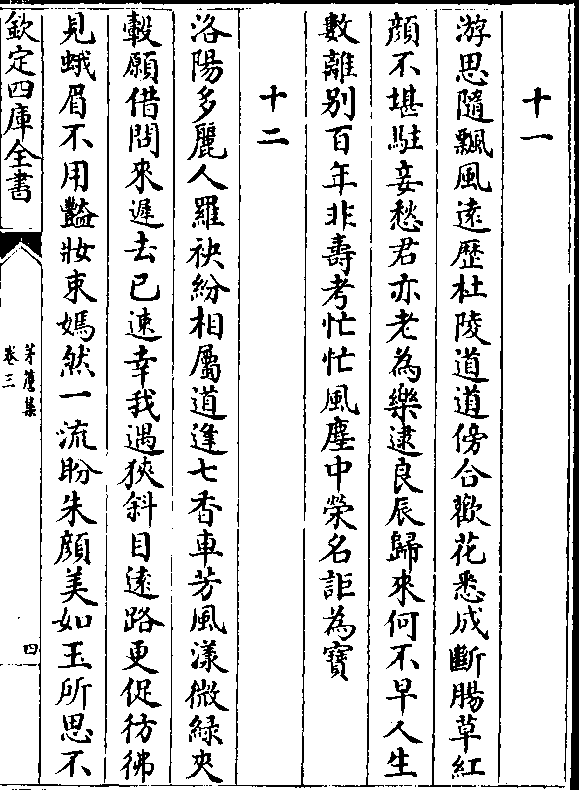 十一
游思隨飄風遠歴杜陵道道傍合歡花悉成斷腸草紅
顔不堪駐妾愁君亦老為樂逮良辰歸來何不早人生
數離别百年非壽考忙忙風塵中榮名詎為寳
十二
洛陽多麗人羅袂紛相屬道逢七香車芳風漾微緑夾
轂願借問來遲去已速幸我遇狹斜目逺路更促彷彿
見蛾眉不用豔妝束嫣然一流盼朱顔美如玉所思不
欽定四庫全書
茅簷集
卷三
四